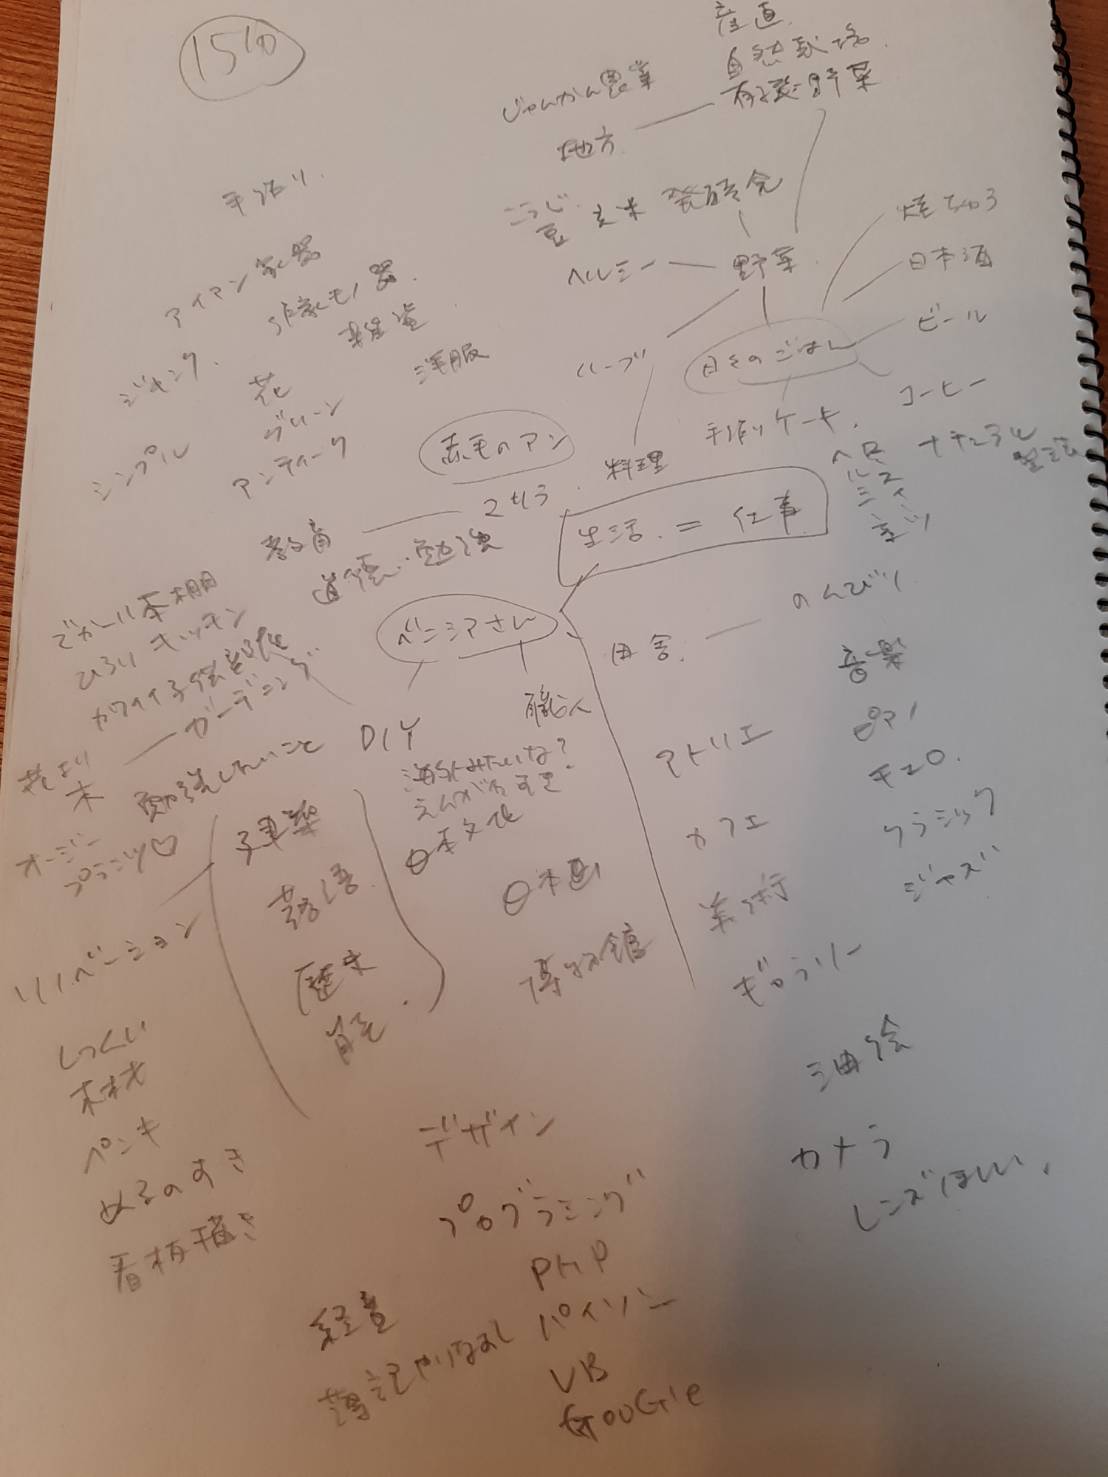 15分
産直
自然栽培
有機野菜
じゅんかん農業
地方
手作り
こうじ
豆
玄米
発酵食
焼ちゅう
ヘルシー
野菜
日本酒
アイアン家器
作家モノ器
雑貨
ビール
ジャンク
花
洋服
ハーブ
日々のごはん
コーヒー
シンプル
グリーン
アンティーク
赤毛のアン
料理
手作りケーキ
ナチュラル
教育
道徳・勉強
生活 = 仕事
でかい本棚
ひろいキッチン
ガーデニング
ベニシアさん
のんびり
田舎
音楽
木
勉強したいこと
DIY
職人
海外みたいな?
日本文化
アトリエ
ピアノ
チェロ
オージー
プランツ♡
建築
カフェ
クラシック
落語
日本画
美術
ジャズ
リノベーション
歴史
博物館
ギャラリー
しっくい
木材
油絵
ペンキ
デザイン
カメラ
ぬるのすき
プログラミング
レンズほしい
看板描き
PHP
経営
パイソン
簿記やりなおし
VB
GooGle